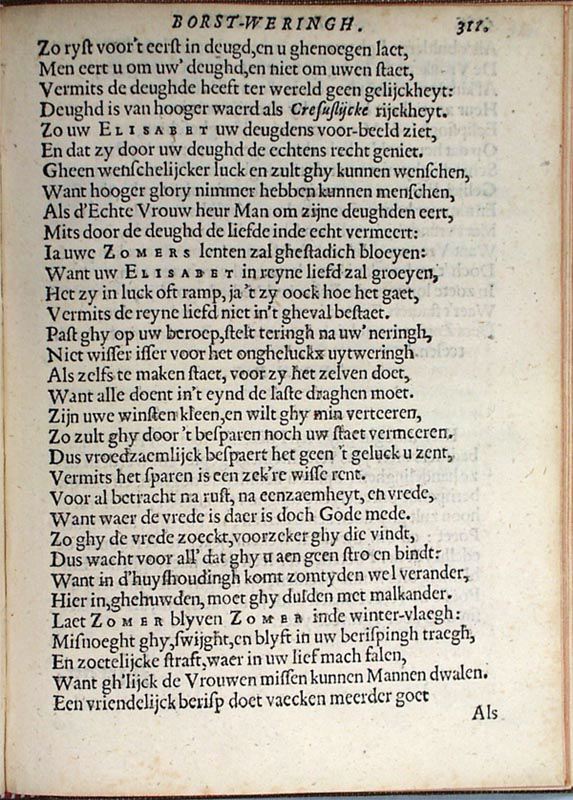 BORST-WERINGH. 311.
Zo ryſt voor't eerſt in deugd, en u ghenoegen laet,
Men eert u om uw' deughd, en niet om uwen ſtaet,
Vermits de deughde heeft ter wereld geen gelijckheyt:
Deughd is van hooger waerd als Creſuſlijcke rijckheyt.
Zo uw ELISABET uw deugdens voor-beeld ziet,
En dat zy door uw deughd de echtens recht geniet.
Gheen wenſchelijcker luck en zult ghy kunnen wenſchen,
Want hooger glory nimmer hebben kunnen menſchen,
Als d'Echte Vrouw heur Man om zijne deughden eert,
Mits door de deughd de liefde inde echt vermeert:
Ia uwe ZOMERS lenten zal gheſtadich bloeyen:
Want uw ELISABET in reyne liefd zal groeyen,
Het zy in luck oft ramp, ja 't zy oock hoe het gaet,
Vermits de reyne liefd niet in't gheval beſtaet.
Paſt ghy op uw beroep, ſtelt teringh na uw' neringh,
Niet wiſſer iſſer voor het ongheluckx uytweringh
Als zelfs te maken ſtaet, voor zy het zelven doet,
Want alle doent in't eynd de laſte draghen moet.
Zijn uwe winſten kleen, en wilt ghy min verteeren,
Zo zult ghy door 't beſparen noch uw ſtaet vermeeren.
Dus vroedzaemlijck beſpaert het geen 't geluck u zent,
Vermits het ſparen is een zek're wiſſe rent.
Voor al betracht na ruſt, na eenzaemheyt, en vrede,
Want waer de vrede is daer is doch Gode mede.
Zo ghy de vrede zoeckt, voorzeker ghy die vindt,
Dus wacht voor all' dat ghy u aen geen ſtro en bindt:
Want in d'huyſhoudingh komt zomtyden wel verander,
Hier in, ghehuwden, moet ghy dulden met malkander.
Laet ZOMER blyven ZOMER inde winter-vlaegh:
Miſnoeght ghy, ſwijght, en blyft in uw beriſpingh traegh,
En zoetelijcke ſtraft, waer in uw lief mach falen,
Want gh'lijck de Vrouwen miſſen kunnen Mannen dwalen.
Een vriendelijck beriſp doet vaecken meerder goet
Als